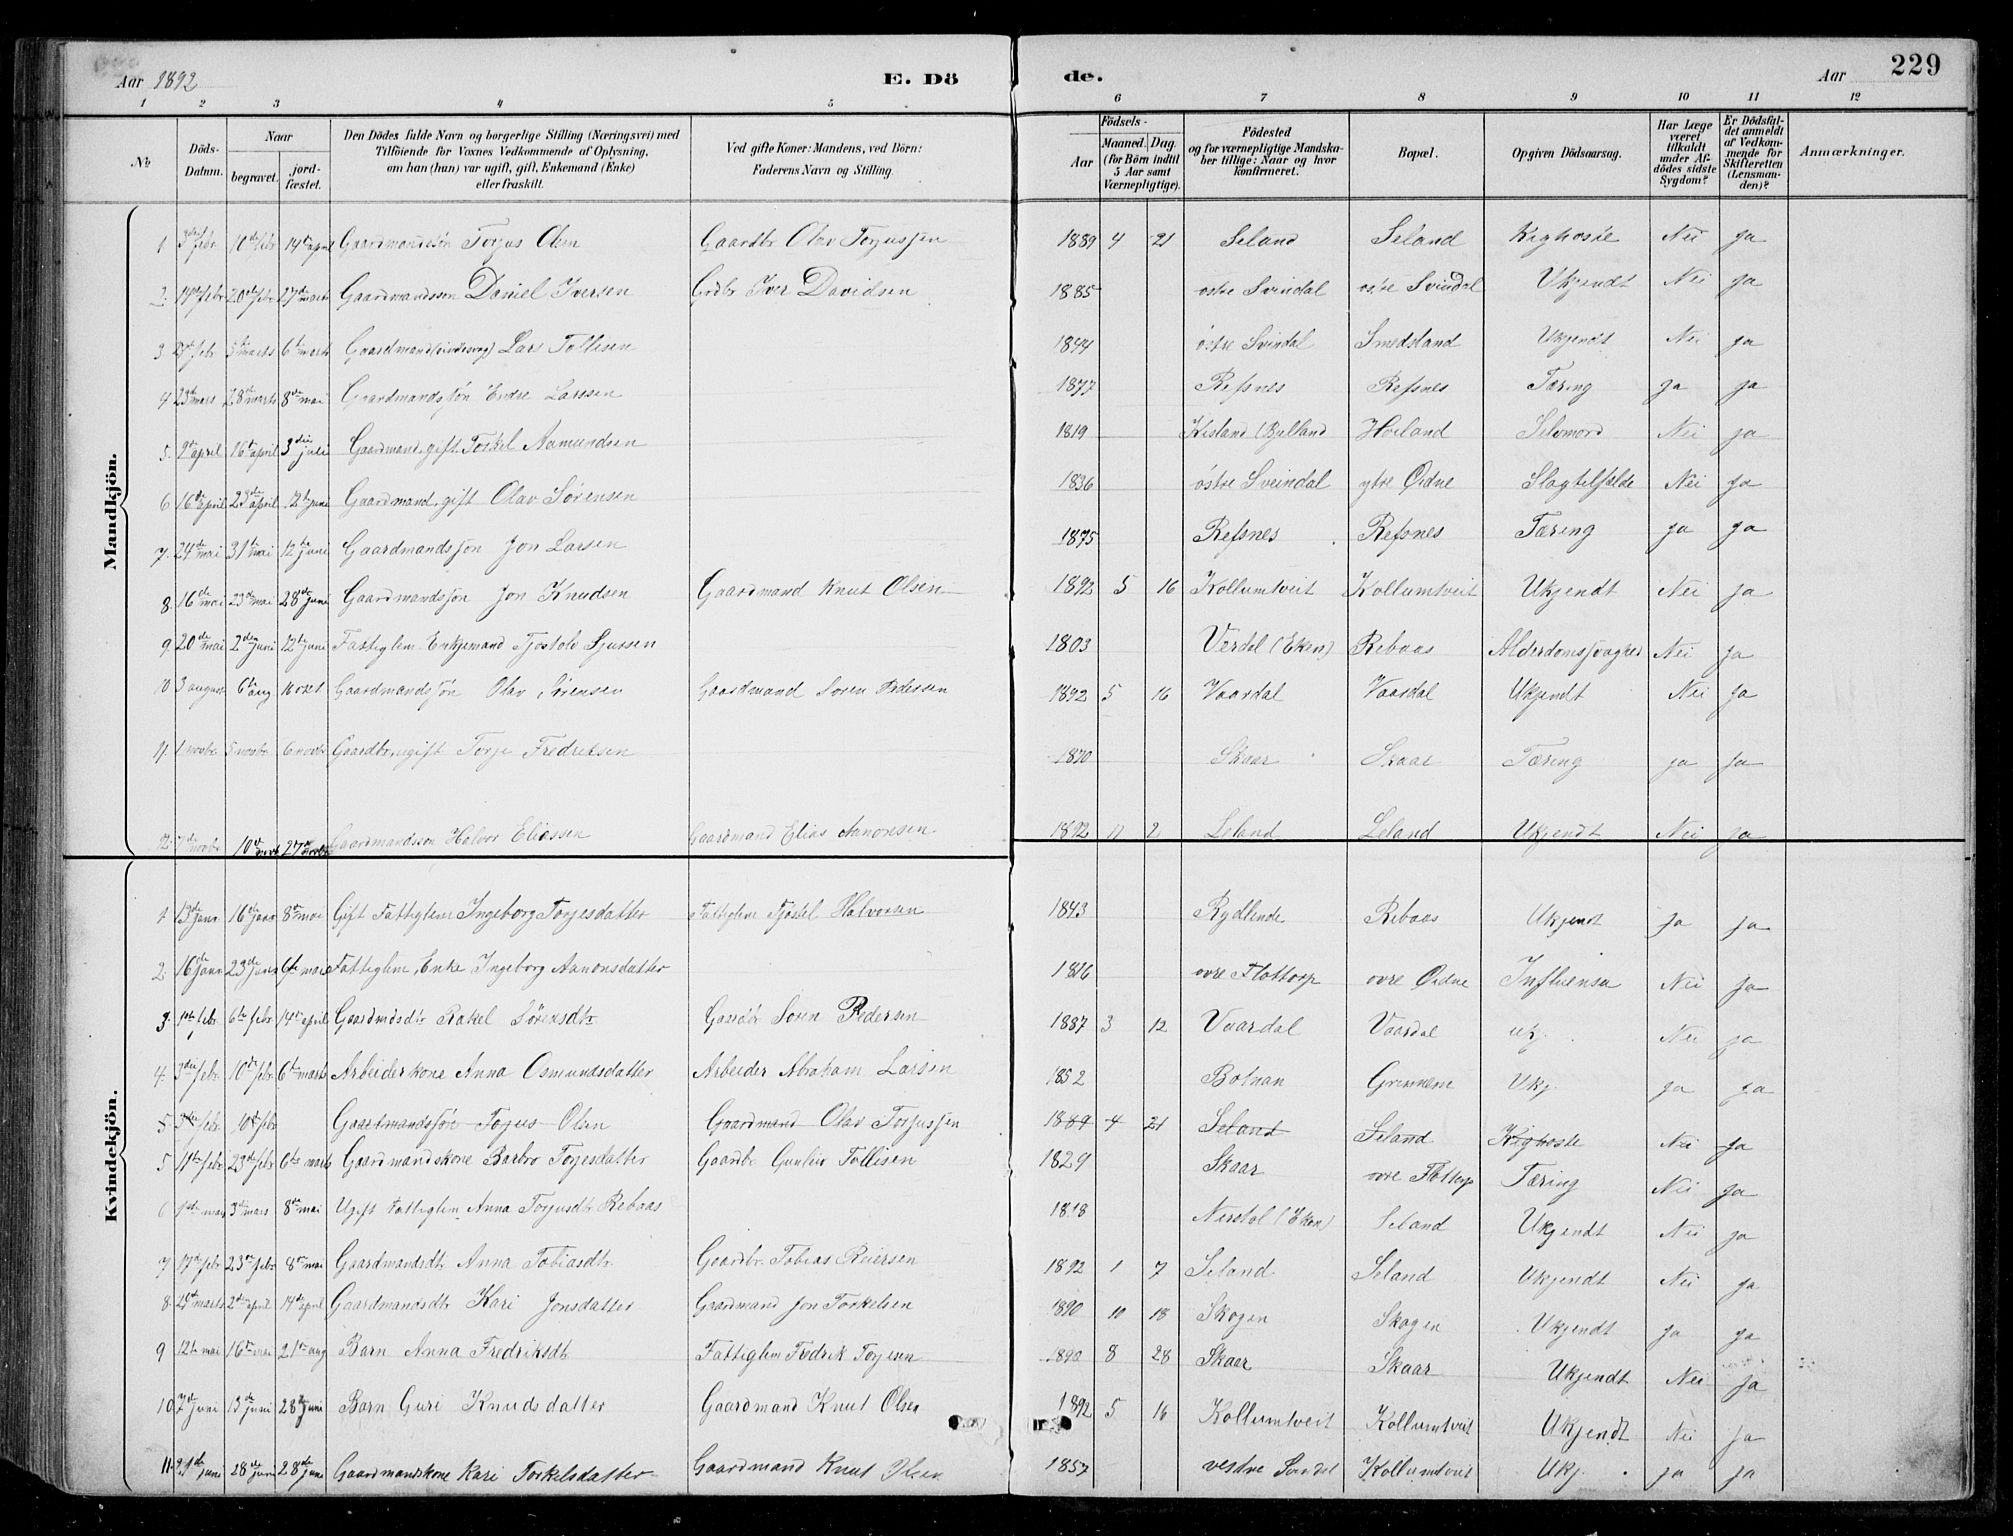 Aar 1892 E. Dö de. Aar 229
1 2 3 4 5 6 7 8 9 10 11 12
№ Döds-Datum. Naar begravet. jord-fæstet. Den Dödes fulde Navn og borgerlige Stilling (Næringsvei) med Tilföiende for Voxnes Vedkommende af Oplysning, om han (hun) var ugift, gift, Enkemand (Enke) eller fraskilt. Ved gifte Koner: Mandens, ved Börn: Faderens Navn og Stilling. Födsels- Aar Maaned. Dag. (for Börn indtil 5 Aar samt Værnepligtige). Födested og for værnepligtige Mandskaber tillige: Naar og hvor konfirmeret. Bopæl. Opgiven Dödsaarsag. Har Læge været tilkaldt under Afdödes sidste Sygdom? Er Dödsfaldet anmeldt af Vedkommende for Skifteretten (Lensmanden)? Anmærkninger.
Mandkjön.
1 3die febr 10de febr 14de april Gaardmandssön Torjus Olsen Gaardbr Olav Torjussen 1889 4 21 Seland Seland Kighoste Nei Ja
2. 14de febr 20de febr 27de marts Gaardmandsson Daniel Iversen Grdbr Iver Davidsen 1885 østre Svindal østre Svindal Ukjendt Nei Ja
3. febr 5te marts 6te marts Gaardmand Lars Tollisen 1844 østre Svindal Smedsland Ukjendt Nei Ja
4 23de mars 28de marts 8de mai Gaardmandssøn Endre Larssen 1877 Refsnes Refsnes Tæring Ja Ja
5. 9de april 16te april 3die juli Gaardmand, gift Torkel Aamundsen 1819 Kisland (Bjelland Høiland Selvmord Nei Ja
6 16de april 23de april 12te juni Gaardmand, gift Olav Sørensen 1836 østre Sveindal ytre Øidne Slagtilfælde Nei Ja
7. 24de mai 31te mai 12te juni Gaardmandssøn Jon Larsen 1875 Refsnes Refsnes Tæring Ja Ja
8. 16de mai 23de mai 28de juni Gaardmandssøn Jon Knudsen Gaardmand Knut Olsen 1892 5 16 Kollumtveit Kollumtveit Ukjendt Nei Ja
9 20de mai 2den juni 12te juni Fattiglem Enkjemand Tjøstolv Sjursen 1803 Verdal (Eken) Rebaas Alderdomssvaghed Nei Ja
10 3 august 6te aug 16 okt Gaardmandssøn Olav Sørensen Gaardmand Søren Pedersen 1892 5 16 Vaardal Vaardal Ukjendt Nei Ja
11. 1 novbr 5 novbr 6 novbr Gaardbr. ugift Torje Fredriksen 1870 Skaar Skaar Tæring Ja Ja
12. 7de novbr 10de novb 27de novbr Gaardmandsson Halvor Eliassen Gaardmand Elias Aanonsen 1892 11 2 Leland Leland Ukjendt Nei Ja
Kvindekjön.
1 13de janr 16de janr 8de mai Gift Fattiglem Ingeborg Torjesdatter Fattiglem Tjøstel Halvorsen 1843 Rydlende Rebaas Ukjendt Ja Ja
2 16de janr 23de janr 6te mars Fattiglem, Enke Ingeborg Aanonsdatter 1816 øvre Flottorp øvre Øidne Influensa Nei Ja
3. 1ste febr 6te febr 14de april Gaardmdsdtr Rakel Sörensdtr Gaardbr Soren Pedersen 1887 3 12 Vaardal Vaardal Ukj. Nei Ja
4. 3die febr 10de febr 6te marts Arbeiderkone Anna Osmundsdatter Arbeider Abraham Larsen 1852 Botnan Ukj. Ja Ja
5 3die febr 10de febr Gaardmandssøn Torjus Olsen Gaardmand Olav Torjussen 1889 4 21 Seland Seland Kighoste Nei Ja
5 11te febr 23de febr 6te marts Gaardmandskone Barbro Torjesdatter Gaardbr Gunleiv Tollisen 1829 Skaar øvre Flottorp Tæring Nei Ja
6 1ste mars 3die mars 8de mai Ugift Fattiglem Anna Torjusdtr Rebaas 1818 Nerstøl (Eken) Seland Ukjendt Nei Ja
7 17de febr 23de febr 8de mai Gaardmandsdtr Anna Tobiasdtr Gaardbr. Tobias Reiersen 1892 1 7 Seland Seland Ukjendt Nei Ja
8. marts 2den april 14de april Gaardmandsdtr Kari Jonsdatter Gaardmand Jon Torkelsen 1890 10 18 Skogen Skogen Ukjendt Ja Ja
9 12te mai 16te mai 21te aug Barn Anna Fredriksdtr Fattiglem Fredrik Torjesen 1890 8 28 Skaar Skaar Ukjendt Nei Ja
10 7de juni 13de juni 28de juni Barn Guri Knudsdatter Gaardmand Knut Olsen 1892 5 16 Kollumtveit Kollumtveit Ukjendt Nei Ja
11. 21de juni 28de juni 28de juni Gaardmandskone Kari Torkelsdatter Gaardmand Knut Olsen 1857 vestre Svindal Kollumtveit Ukj. Ja Ja